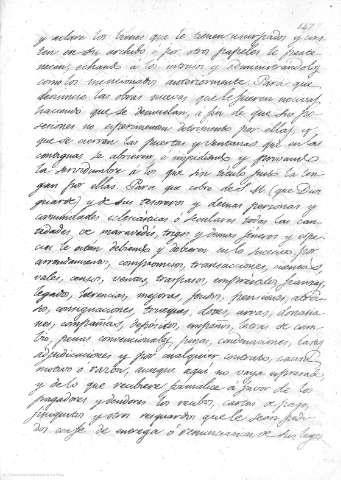 y aclare los bienes que le tienen usurpados y cons
ten en su archibo o por otros papeles le perte
necan, echando a los intrusos y administrandolos
como los mencionados anteriormente. Para que
denuncie las obras nuevas que le fueren nocivas,
haciendo que se demuelan, a fin de que sus po
sesiones no esperimenten detrimento por ellas, y
que se cierren las puertas y ventanas que en las
contiguas se abrieren é impidiendo
la servidumbre a los que sin titulo justo la ten
gan por ellas. Para que cobre de S. M. (que Dios
guarde) y de sus tesoreros y demas personas y
comunidades eclesiasticas ó seculares todas las can
tidades de maravedis, trigo y demas generos y espe
cies le estan debiendo y debieren en lo sucesivo por
arrendamientos, compromisos, transacciones,
vales, censos, ventas, traspasos, emprestitos, fianzas,
legados, herencias, mejoras, feudos, pensiones,
consignaciones, trueques, dotes, arras, donacio
nes, compañias, depositos, empeños, letras de cam
bio, penas convencionales, condenaciones,
adjudicaciones y por cualquier contrato, causa
motivo o razon, aunque aqui no vaya espresada,
y de lo que recibiere formalice a favor de los
pagadores y deudores los recibos, cartas de pago,
finiquitos y otros resguardos que le sean pedi
dos con fe de entrega ó renunciacion de sus leyes